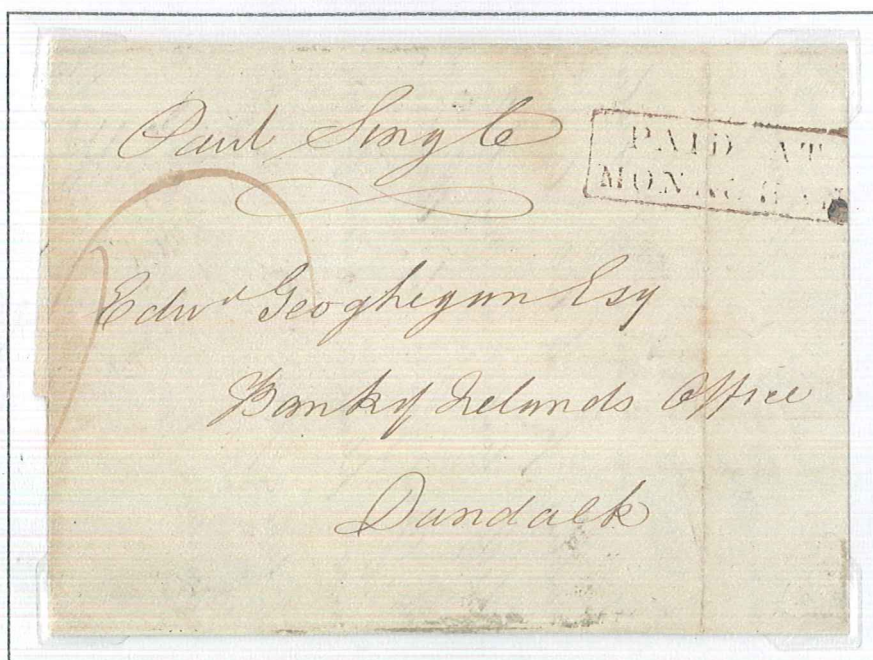 Paid Single
PAID AT
MONAGHAN
Edwd Geoghegan Esq
Bank of Irelands Office
Dundalk